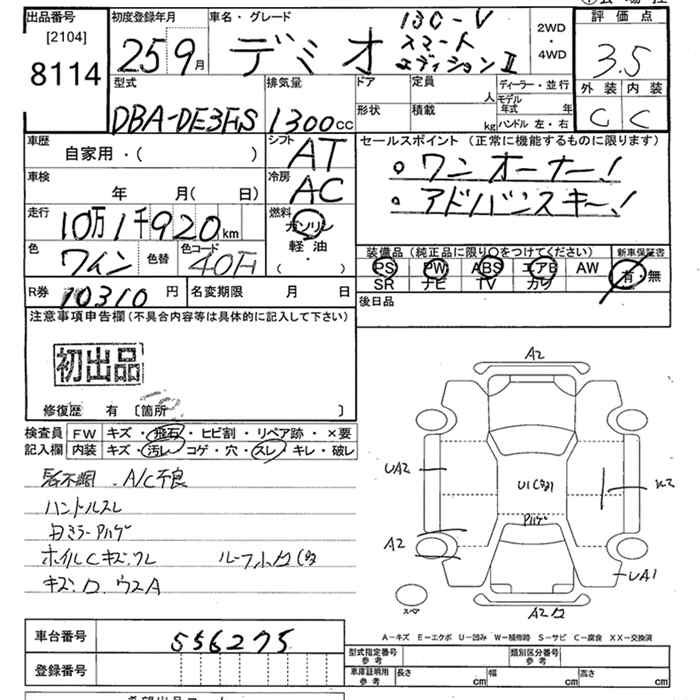 出品番号
[2104]
8114
初度登録年月
25 9月
車名・グレード
デミオ
13C-V
スマート
エディションⅡ
2WD
・
4WD
評価点
3.5
外装 内装
C C
型式
DBA-DE3FS
排気量
1300cc
ドア
形状
定員
人
積載
kg
ディーラー・並行
モデル年式 年
ハンドル 左・右
車歴
自家用・( )
シフト
AT
車検
年 月( 日)
冷房
AC
走行
10万1千920km
燃料
ガソリン
軽油
・
( )
色
ワイン
色替
色コード
セールスポイント (正常に機能するものに限ります)
。ワンオーナー!
。アドバンスキー!
装備品(純正品に限り○をつけてください)
新車保証書
PS PW ABS エアB AW
有・無
SR ナビ TV カワ
後日品
R券
10310円
名変期限 月 日
注意事項申告欄(不具合内容等は具体的に記入して下さい)
初出品
修復歴 有 〔箇所 〕
検査員 FW キズ・飛石・ヒビ割・リペア跡・×要
記入欄 内装 キズ・汚レ・コゲ・穴・スレ・キレ・破レ
A/C不良
ハンドルスレ
ミラーアハゲ
ホイルCキズ、ワレ
キズ、ロ、ウスA
A2
UA2
U1
アハゲ
A2
UA1
スペ
A2
A-キズ E-エクボ U-凹み W-補修跡 S-サビ C-腐食 XX-交換済
車台番号
556275
登録番号
型式指定番号
参考
類別区分番号
参考
車庫証明用
参考
長さ cm
幅 cm
高さ cm